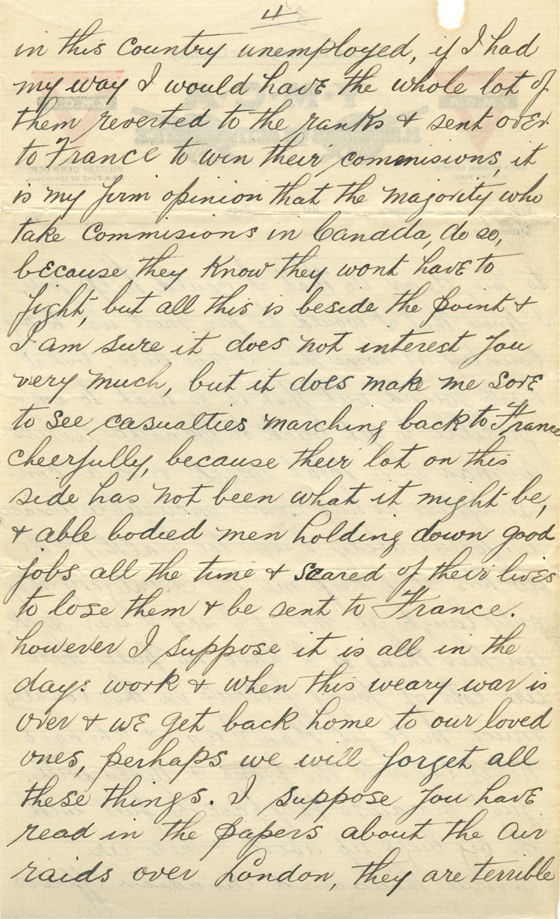 4
in this country unemployed, if I had
my way I would have the whole lot of
them reverted to the ranks & sent over
to France to win their commisions, it
is my firm opinion that the majority who
take commisions in Canada, do so,
because they know they wont have to
fight, but all this is beside the point &
I am sure it does not interest you
very much, but it does make me sore
to see casualties marching back to France
cheerfully, because their lot on this
side has not been what it might be,
& able bodied men holding down good
jobs all the time & scared of their lives
to lose them & be sent to France.
however I suppose it is all in the
days work & when this weary war is
over & we get back home to our loved
ones, perhaps we will forget all
these things. I suppose you have
read in the papers about the air
raids over London, they are terrible